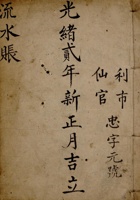 利市
仙官
忠字元號
光緒貳年新正月吉立
流水賬